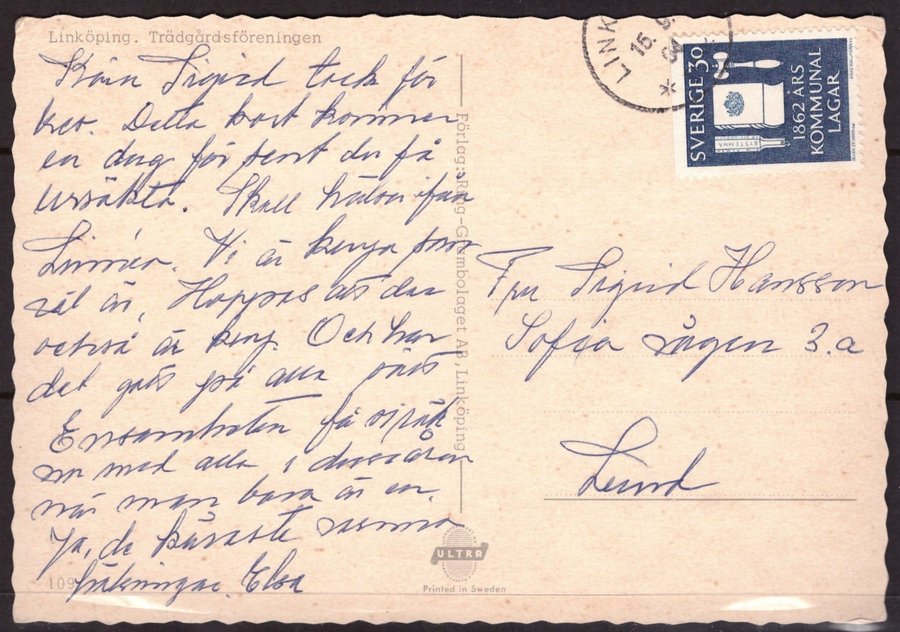 Linköping. Trädgårdsföreningen
Kära Sigrid tack för
brev. Detta kort kommer
en dag för sent du få
ursäkta. Skall hälsa ifrån
Linnéa. Vi är krya som
väl är, Hoppas att du
också är kry. Och har
det gott på alla sätt
Ensamheten få vi räk
na med alla i dessa åren
när man bara är en.
Ja, de käraste varma
hälsningar Elsa
109
Förlag: Ring-Grambolaget AB, Linköping
ULTRA
Printed in Sweden
LINK
15.
SVERIGE 30
1862 ÅRS
KOMMUNAL
LAGAR
SYSTEMNA
Fru Sigrid Hansson
Sofia vägen 3.a
Lund